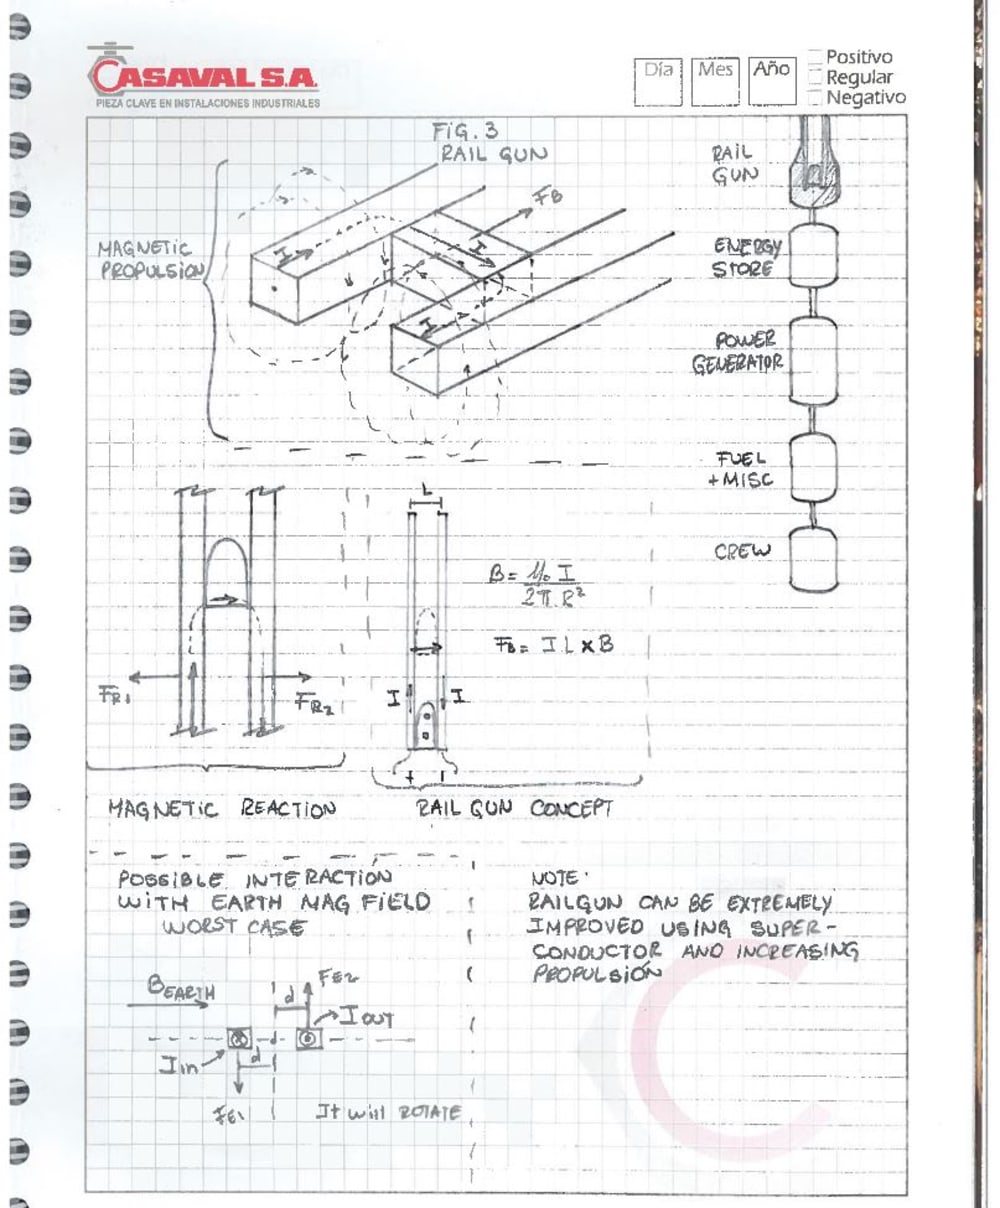 CASAVAL S.A.
PIEZA CLAVE EN INSTALACIONES INDUSTRIALES
Día
Mes
Año
Positivo
Regular
Negativo
FIG. 3
RAIL GUN
MAGNETIC
PROPULSION
I
I
I
FB
RAIL
GUN
ENERGY
STORE
POWER
GENERATOR
FUEL
+MISC
CREW
FR1
FR2
MAGNETIC REACTION
L
I
I
+
-
B = μ0 I
2π R²
FB = I L x B
RAIL GUN CONCEPT
POSSIBLE INTERACTION
WITH EARTH MAG FIELD
WORST CASE
BEARTH
d
FE2
I OUT
I in
d
FE1
It will ROTATE
NOTE:
RAILGUN CAN BE EXTREMELY
IMPROVED USING SUPER-
CONDUCTOR AND INCREASING
PROPULSION